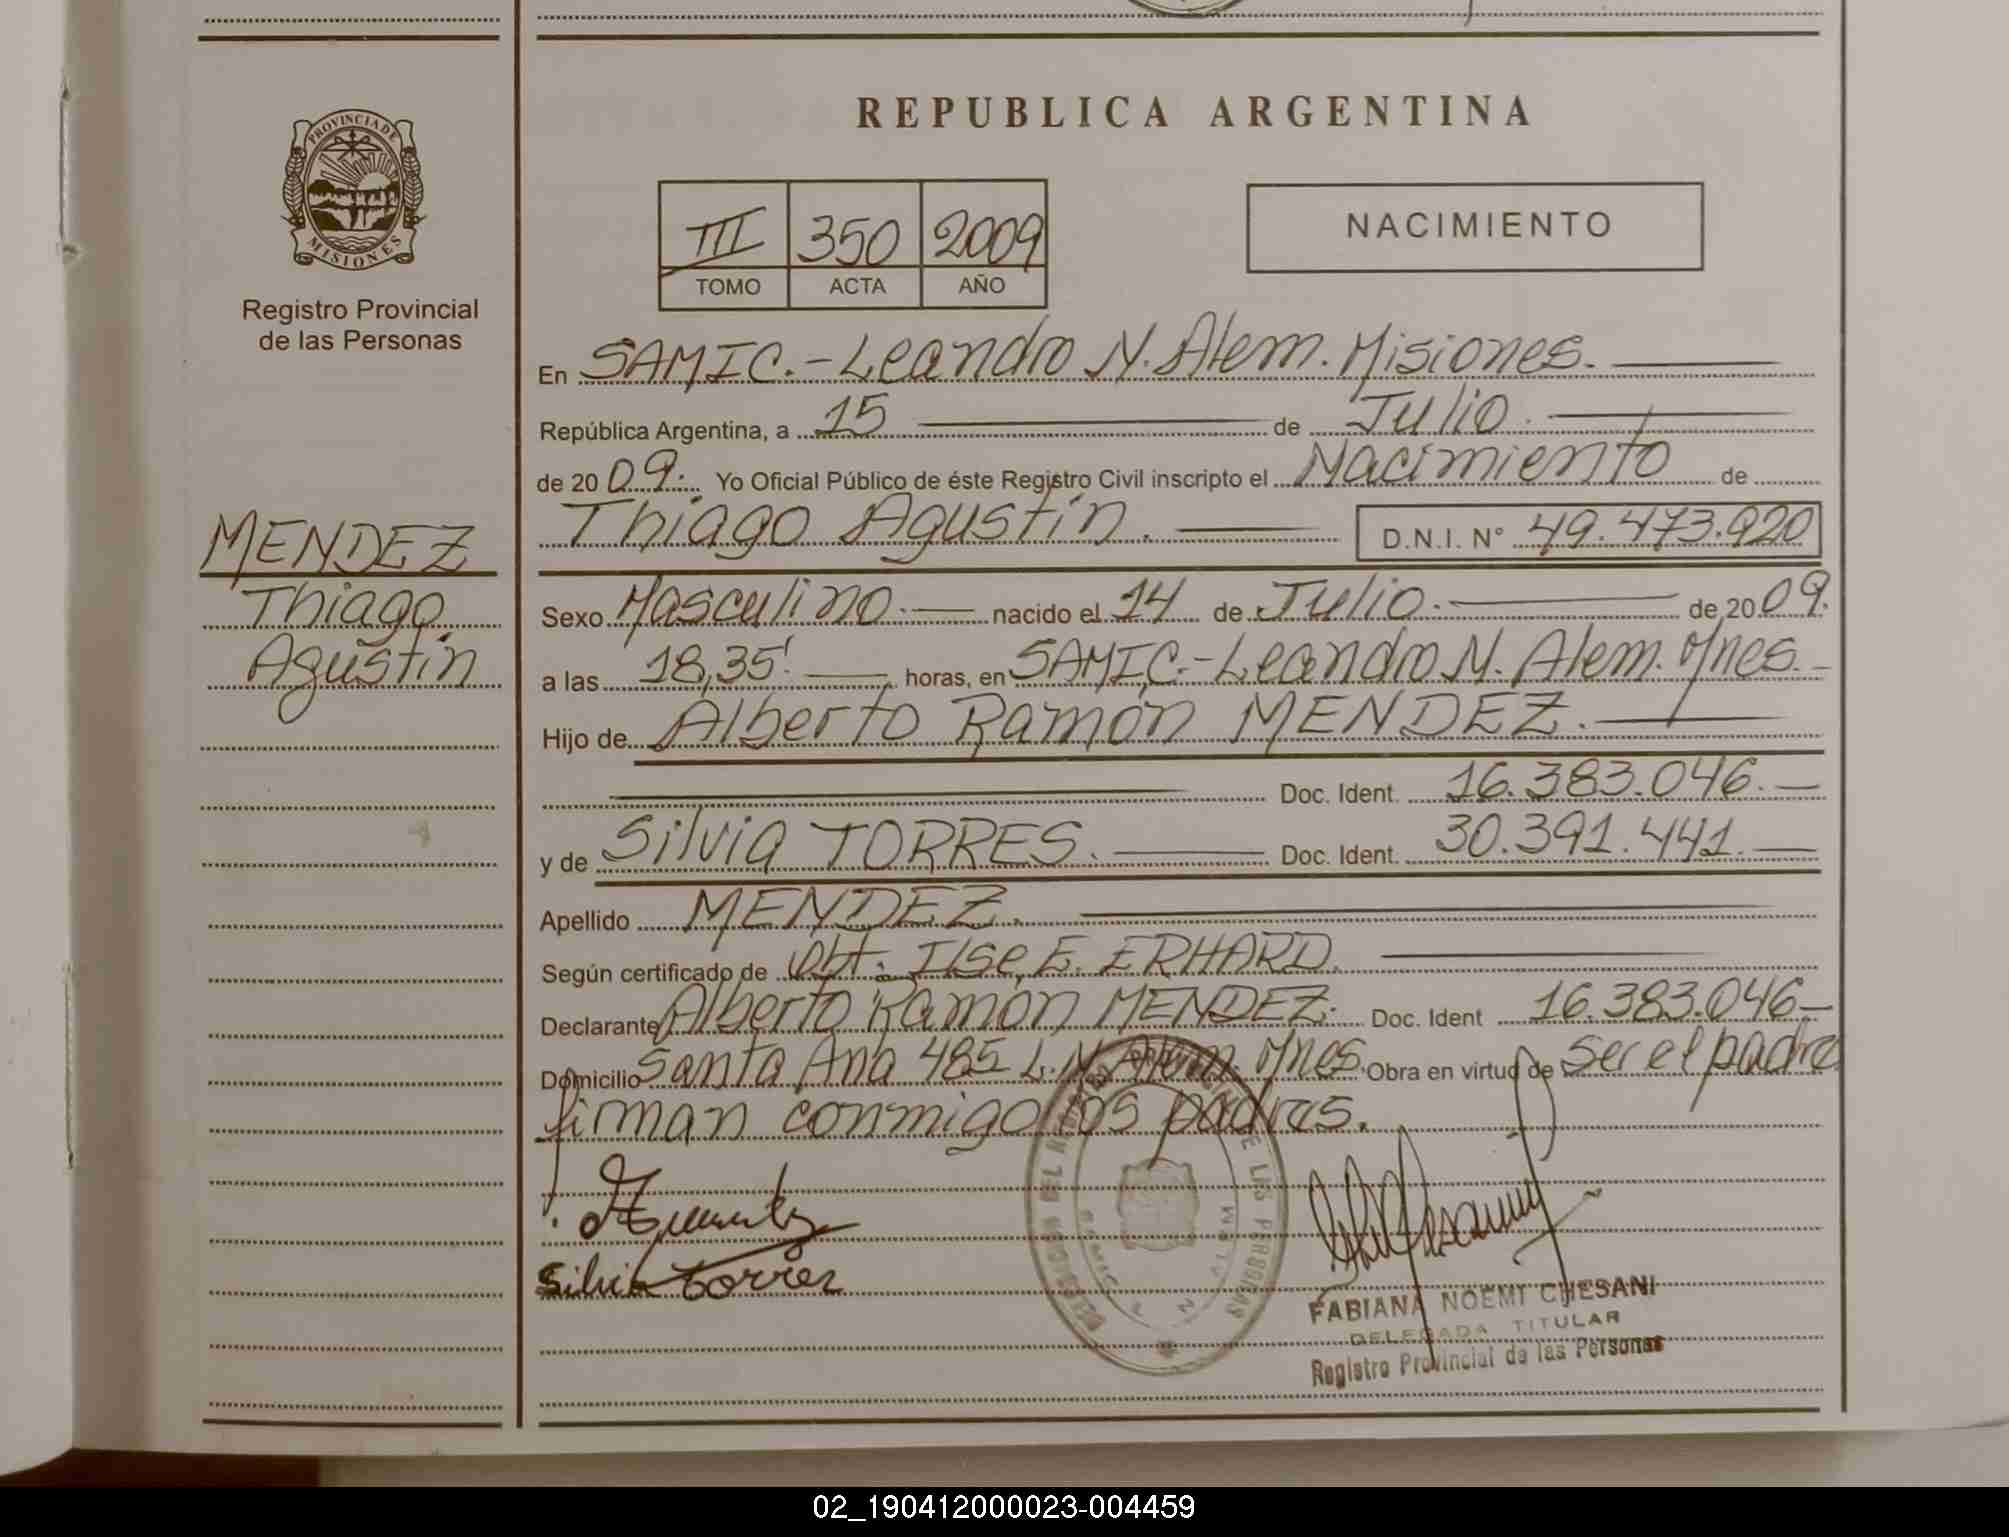 PROVINCIA DE
MISIONES
Registro Provincial
de las Personas
MENDEZ
Thiago
Agustín
REPUBLICA ARGENTINA
III 350 2009
TOMO ACTA AÑO
NACIMIENTO
En SAMIC.- Leandro N. Alem. Misiones.
República Argentina, a 15 de Julio.
de 2009. Yo Oficial Público de éste Registro Civil inscripto el Nacimiento de
Thiago Agustín. D.N.I. N° 49.473.920
Sexo Masculino. nacido el 14 de Julio. de 2009.
a las 18,35' horas, en SAMIC.- Leandro N. Alem. Mnes.
Hijo de Alberto Ramón MENDEZ.
Doc. Ident. 16.383.046.
y de Silvia TORRES. Doc. Ident. 30.391.441.
Apellido MENDEZ.
Según certificado de Obt. Ilse E. ERHARD.
Declarante Alberto Ramón MENDEZ. Doc. Ident 16.383.046
Domicilio Santa Ana 485 L.N. Alem. Mnes. Obra en virtud de ser el padre
firman conmigo los padres.
Silvia torres
FABIANA NOEMI CHESANI
DELEGADA TITULAR
Registro Provincial de las Personas
02_190412000023-004459